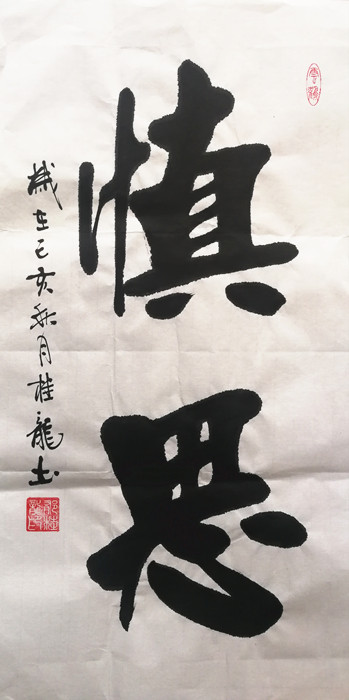 慎思
歲在己亥秋月桂龍書